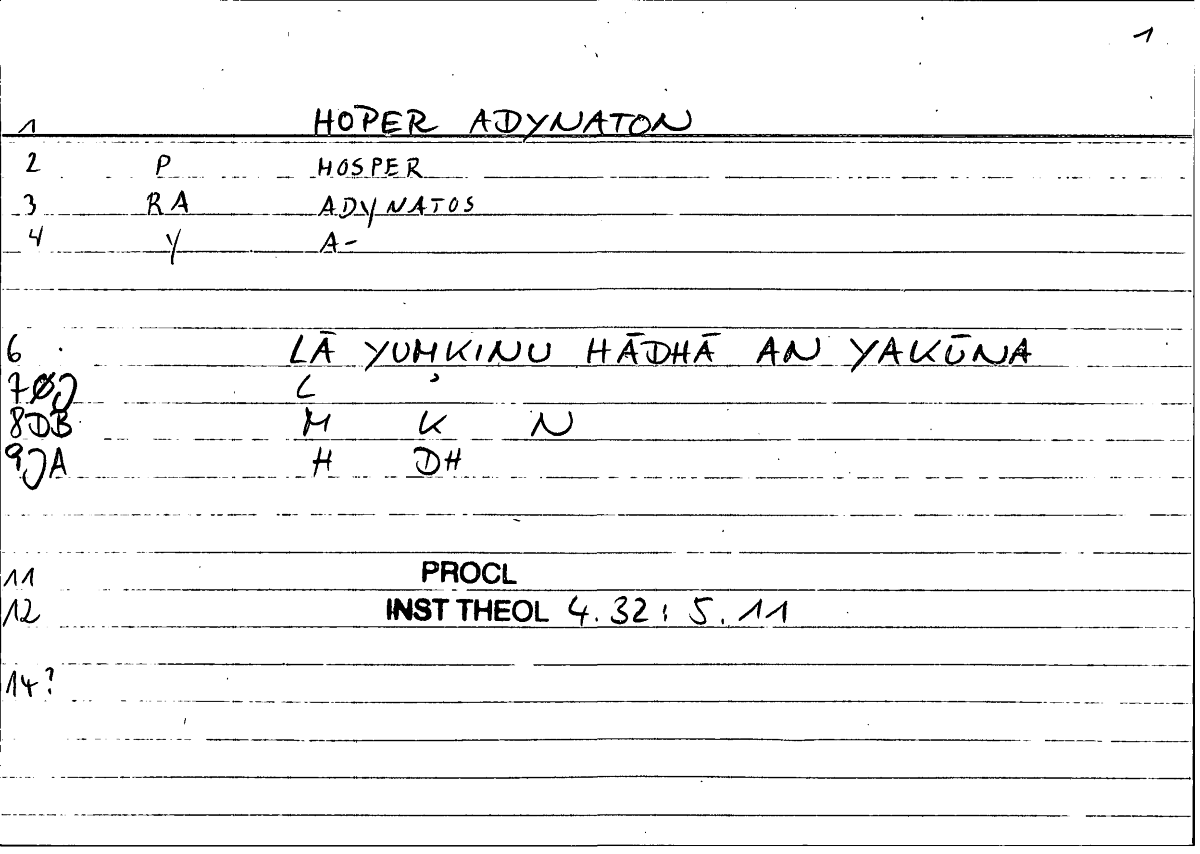 1
1 HOPER ADYNATON
2 P HOSPER
3 RA ADYNATOS
4 Y A-
6 LĀ YUMKINU HĀDHĀ AN YAKŪNA
7ØJ L ʾ
8DB M K N
9JA H DH
11 PROCL
12 INST THEOL 4.32 : 5.11
14?